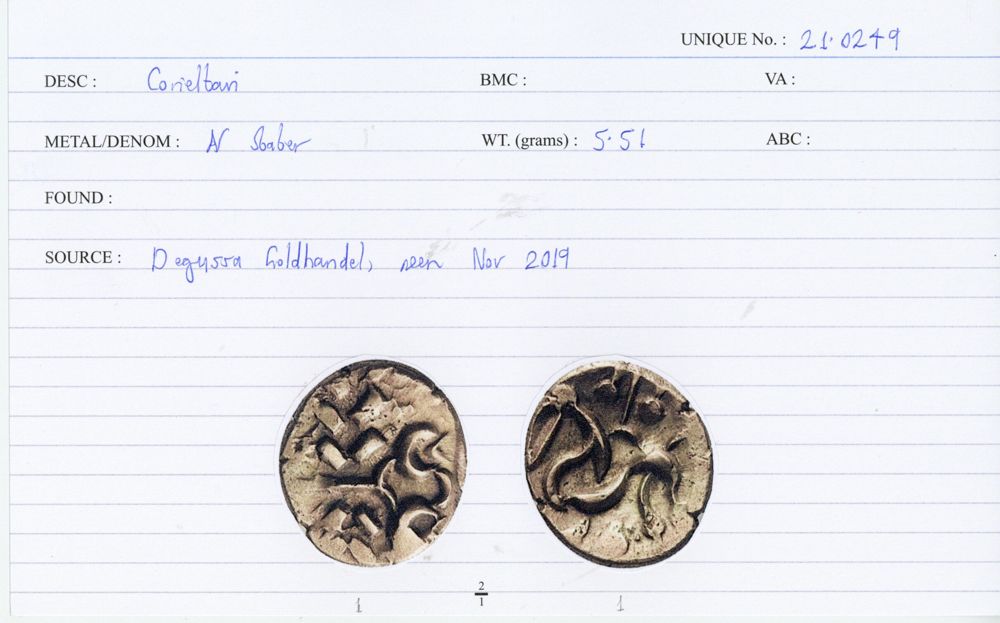 UNIQUE No. : 21.0249
DESC : Corieltavi BMC : VA :
METAL/DENOM : N Staber WT. (grams) : 5.51 ABC :
FOUND :
SOURCE : Degussa Goldhandel, seen Nov 2019
2
1
1 1